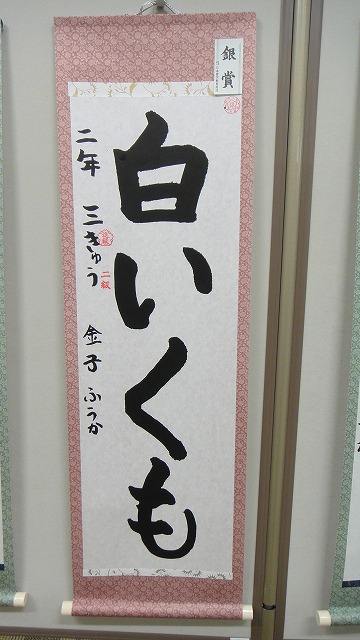 銀賞
白いくも
二年 三きゅう 金子 ふうか
二級